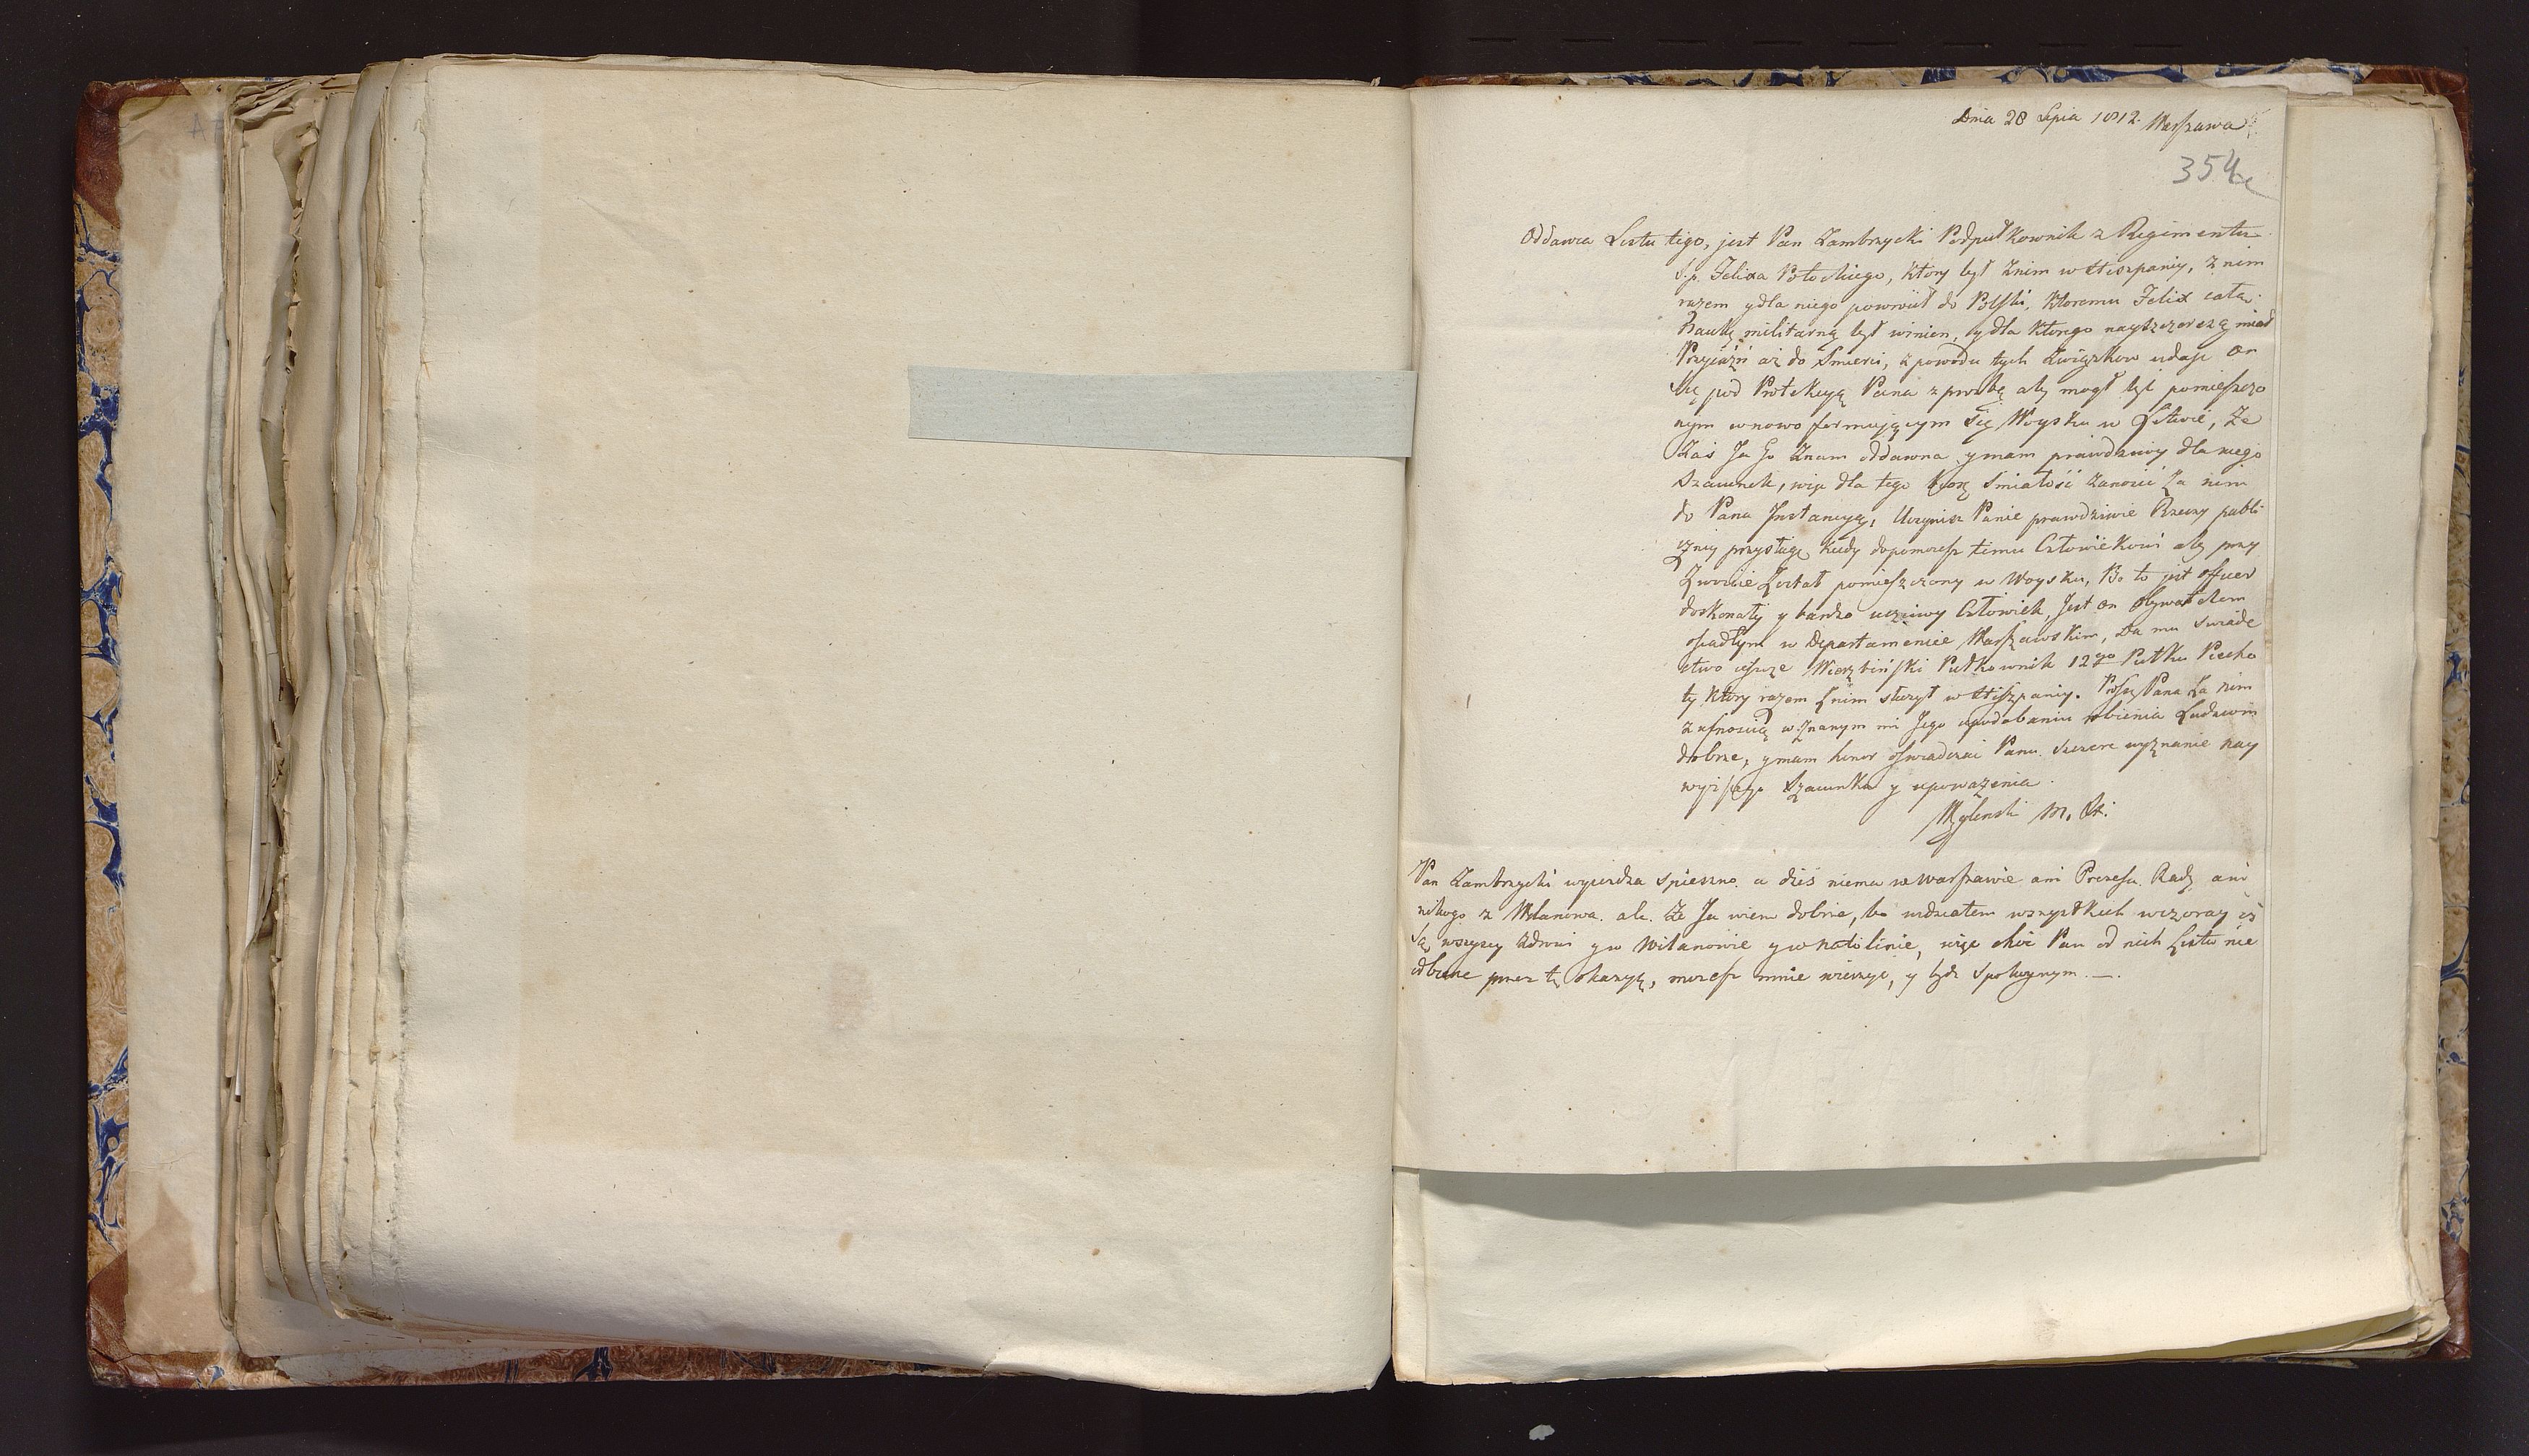 Dnia 28 Lipia 1812. Warszawa
354a
Oddawca Listu tego, jest Pan Zambrzycki Podpułkownik z Regimentu
S. p. Felixa Potockiego, ktory był znim w Hiszpanij, z nim
razem y dla niego powrócił do Polski, ktoremu Felix całą
Naukę militarną był winien, y dla ktorego nayszczerszą miał
Przyiaźń aż do smierci, z powodu tych Związkow udaje on
się pod Protekcyą Pana z prozbą aby mogł być pomieszczo
nym w nowo formującym się Woysku w Litwie, Że
Zaś Ja Go Znam oddawna y mam prawdziwy dla niego
Szacunek, więc dla tego biorę smiałość zanosić za nim
do Pana Instancyą, Uczynisz Panie prawdziwie Rzeczy publi
czney przysługę kiedy dopomożesz temu Człowiekowi aby przy
Zwoicie Został pomieszczony w Woysku, Bo to jest officer
doskonały y bardzo uczciwy Człowiek, Jest on Obywatelem
osiadłym w Departamencie Warszawskim, Da mu swiade
ctwo jeszcze Wierzbiński Pułkownik 12go Pułku Piecho
ty ktory razem z nim służył w Hiszpanij. Proszę Pana za nim
z ufnością w znanym mi Jego upodobaniu robienia Ludziom
dobrze, y mam honor oswiadczać Panu szczere wyznanie nay
wyższego Szacunku y upoważenia.
M. St.
Pan Zambrzycki wyjeżdza spieszno. a dziś niema w Warszawie ani Prezesa Rady ani
nikogo z Wilanowa. ale Że Ja wiem dobrze, bo widziałem wszystkich wczoray iż
są wszyscy zdrowi y w Wilanowie y w Natolinie, więc choć Pan od nich Listu nie
odbierze przez tę okazyą, możesz mnie wierzyć, y bydź spokoynym. —.